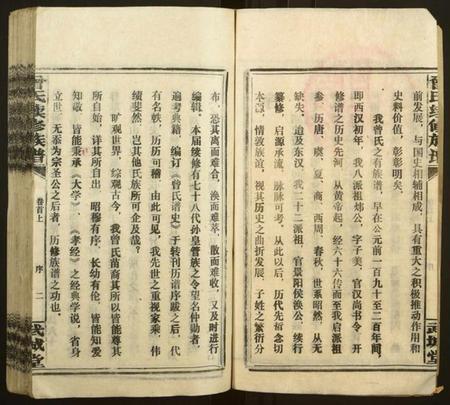 曾氏续修族谱
前前发展，与国史相辅相成，具有重大之积极推动作用和
史料价值，彰彰明矣。
我曾氏之有族谱，早在公元前一百九十至二百年间，
即西汉初年，我八派祖炜公，字子美，官汉尚书令，开
修谱之历史先河，从黄帝起，经六十六传而至我启派祖
参，历唐、虞、夏、商、西周、春秋，世系昭然，从无
缺失。迨及东汉，我二十二派祖，官景阳侯涣公，续行
纂修，启源承流，脉脉可考。从此以后，历代先祖念切
本源，情敦族谊，视其历史之曲折发展，子姓之繁衍分
武城堂
布，恐其离而难合，涣而难萃，散而难收，又及时进行
编辑。本届续修有七十八代孙皇管族之令望名仲勋者，
遍考典籍，编订《曾氏谱史》于转刊历谱序跋之后，代
有名帙，历历可稽，由此可见，我先世之重视家乘，伟
绩斐然，岂其他氏族所可企及哉？
旷观世界，综观古今，我曾氏苗裔其所以皆能尊其
所自始，详其所自出，昭穆有序，长幼有伦，皆能知爱
知敬，皆能秉承《大学》、《孝经》之经典学说，省身
立世，无忝为宗圣公之后者，历修族谱之功也。
曾氏续修族谱
卷首上
序
二
武城堂